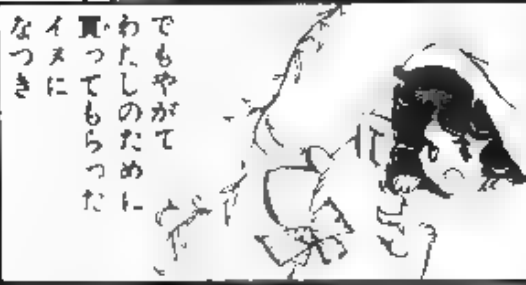 でもやがて
わたしのために
買ってもらった
イヌに
なつき